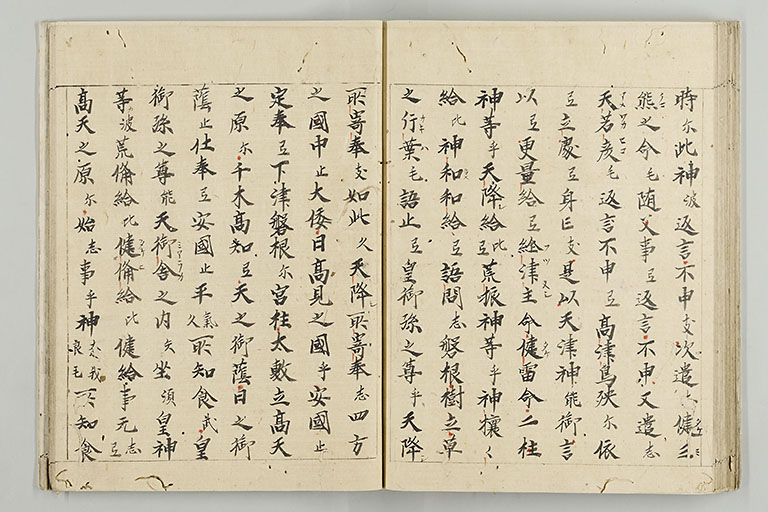 時尓此神波返言不申支次遣之健三
熊之命毛随父事弖返言不申又遣志
天若彦毛返言不申弖高津鳥殃尓依
弖立處弖身亡支是以天津神能御言
以弖更量給弖経津主命健雷命二柱
神等乎天降給比荒振神等乎神攘々
給比神和和給弖語問志磐根樹立草
之行葉毛語止弖皇御孫之尊乎天降
所寄奉支如此久天降所寄奉志四方
之國中止大倭日高見之國乎安國止
定奉弖下津磐根尓宮柱太敷立高天
之原尓千木高知弖天之御蔭日之御
蔭止仕奉弖安國止平氣久所知食武皇
御孫之尊能天御舎之内仁坐須皇神
等波荒備給比健備給比健給事无志弖
高天之原尓始志事乎神奈我良毛所知食